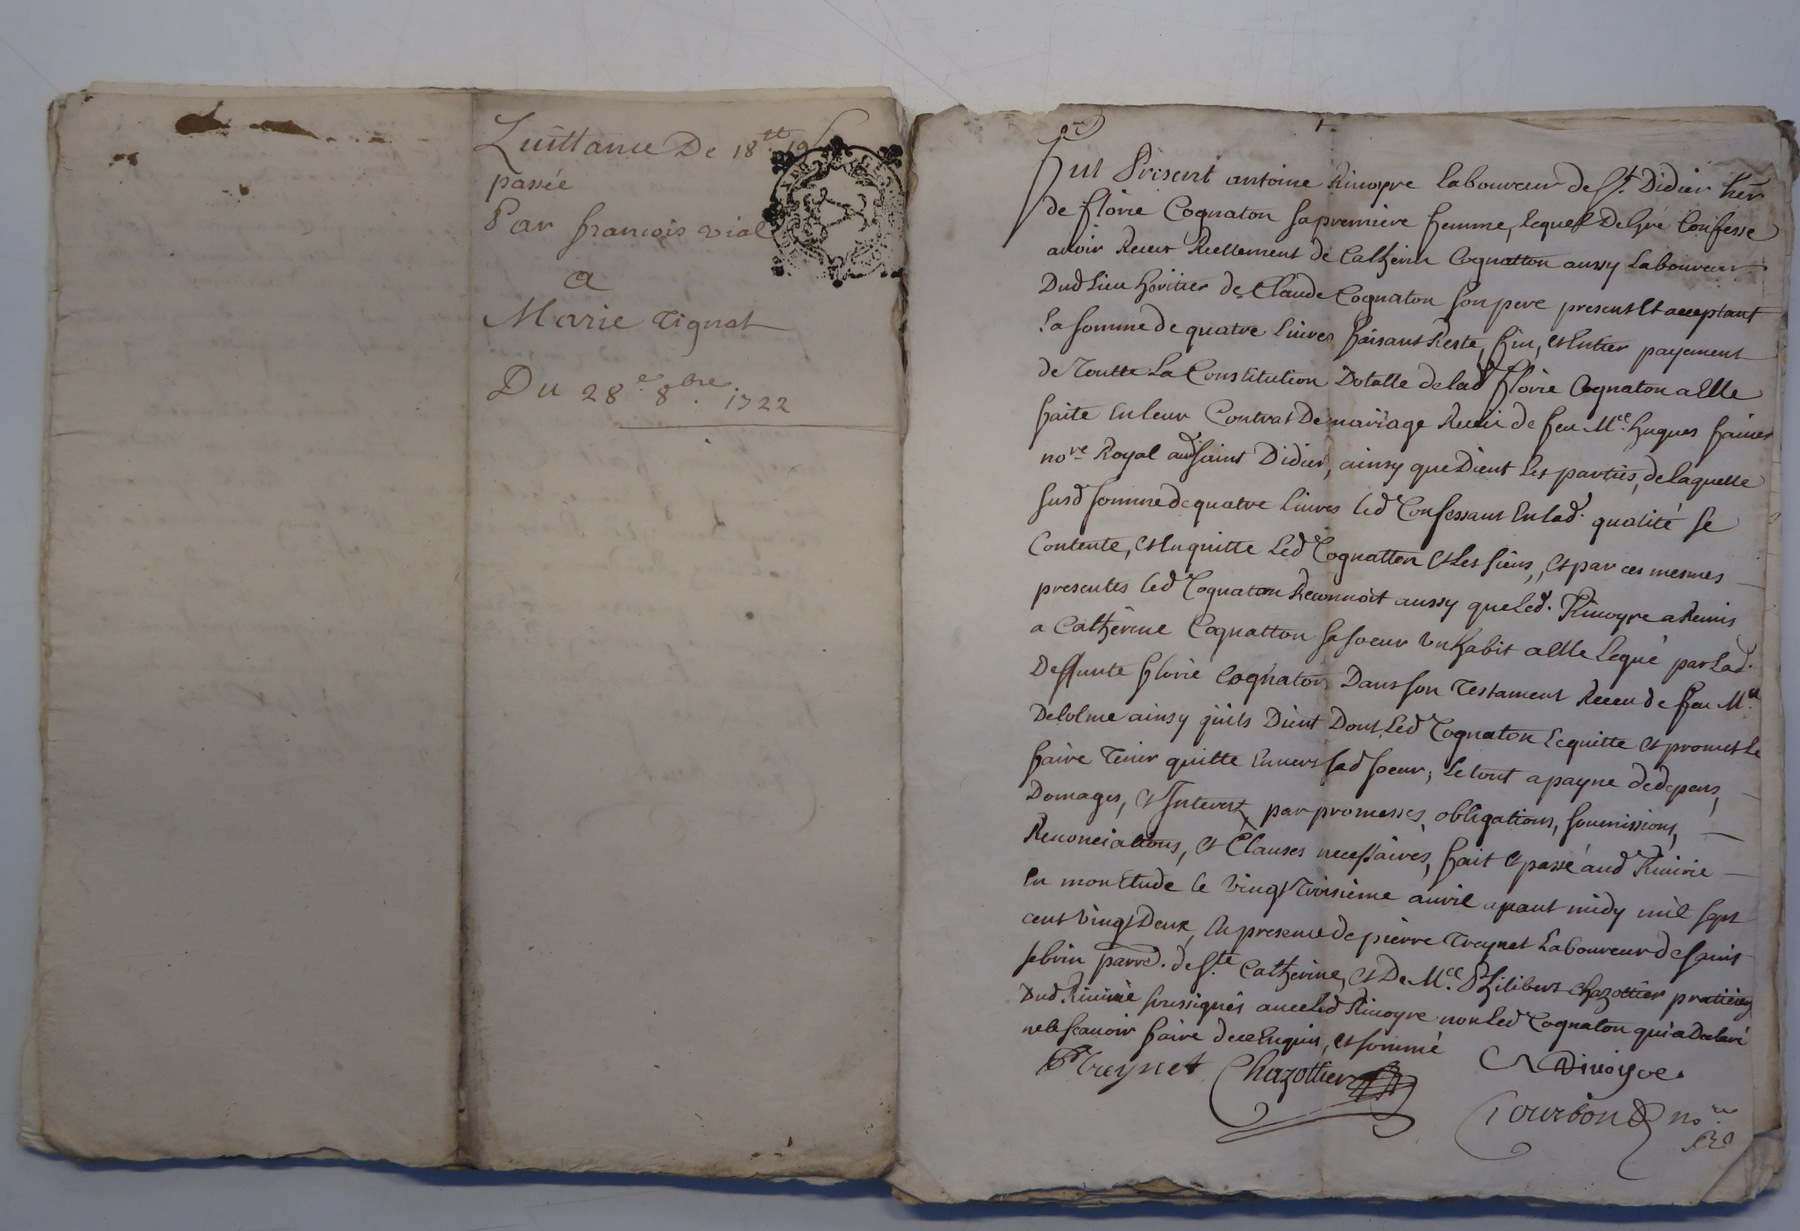 Quittance De 18tt 19s
passée
Par françois vial
a
Marie Tignat
Du 28e 8bre 1722
fut Présent antoine Rivoyre laboureur de St Didier her
de florie Cognaton sa premiere femme, lequel De gré Confesse
avoir Receu Reellement de Catherin Cognatton aussy laboureur
Dud Lieu héritier de Claude Cognaton son pere present et acceptant
la somme de quatre livres faisant Reste, fin, et Entier payement
de Toutte La Constitution Dotalle de lad florie Cognaton a Elle
faite En leur Contrat De mariage Receu de feu Me hugues
nore Royal aud saint Didier, ainsy que Dient les parties, de laquelle
susd somme de quatre livres led Confessant En lad. qualité se
Contente, et En quitte Led Cognatton et Les siens, et par ces mesmes
presentes led Cognaton Reconnoit aussy que Led. Rivoyre a Remis
a Catherine Cognatton sa soeur un habit a Elle Legué par Lad.
Deffunte florie Cognaton Dans son Testament Receu de feu Me
Delolme ainsy quils Dient Dont Led Cognaton Le quitte et promet Le
faire Tenir quitte Envers sad soeur, Le tout a payne de depens,
Domages, et Interest par promesses, obligations, soumissions,
Renonciations, et Clauses necessaires, fait et passé aud Riverie
En mon Etude le vingt Troisieme avril avant midy mil sept
cent vingt Deux, En presence de pierre Treynet Laboureur de saint
sebrin parred. de Ste Catherine, et De Me Philibert Chazottier praticien
Dud. Riverie soussignés avec Led Rivoyre non Led Cognaton qui a Declaré
ne le scavoir faire de ce Enquis, et sommé
P Treynet Chazottier A Rivoire
Tourbon nore